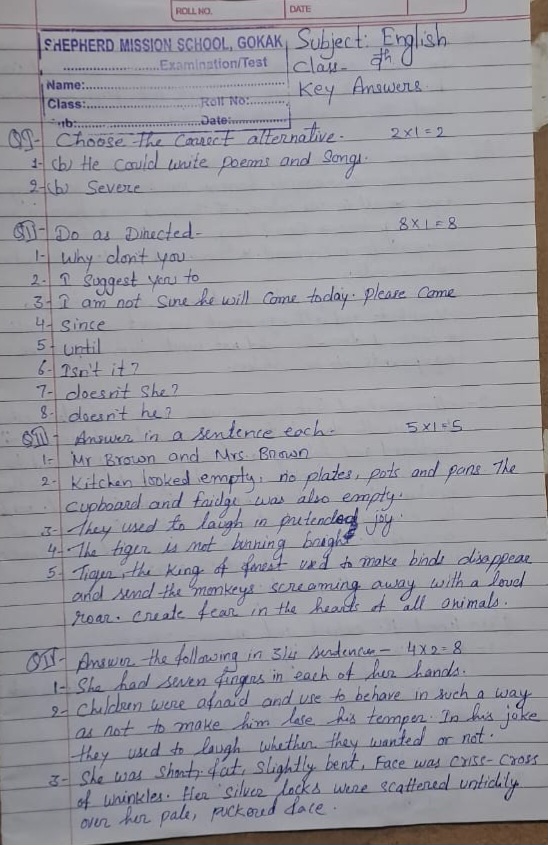 ROLL NO.
DATE
SHEPHERD MISSION SCHOOL, GOKAK
Examination/Test
Name:
Class: Roll No:
Sub: Date:
Subject: English
Class- 9th
Key Answers
QI- Choose the Correct alternative. 2x1=2
1- (b) He Could write poems and Songs.
2-(b) Severe
QII- Do as Directed- 8x1=8
1- Why don't you
2- I Suggest you to
3- I am not Sure he will Come today. please Come
4- Since
5- until
6- Isn't it?
7- doesn't She?
8- doesn't he?
QIII- Answer in a sentence each- 5x1=5
1- Mr Brown and Mrs. Brown
2- Kitchen looked empty, no plates, pots and pans The
Cupboard and fridge was also empty.
3- They used to laugh in pretended joy.
4- The tiger is not burning bright
5- Tiger, the King of forest used to make birds disappear
and send the monkeys screaming away with a loud
roar. Create fear in the hearts of all animals.
QIV- Answer the following in 3/4 sentences- 4x2=8
1- She had seven fingers in each of her hands.
2- Children were afraid and use to behave in such a way
as not to make him lose his temper. In his joke
they used to laugh whether they wanted or not.
3- She was short, fat, slightly bent, Face was criss-cross
of wrinkles. Her silver locks were scattered untidily
over her pale, puckered face.